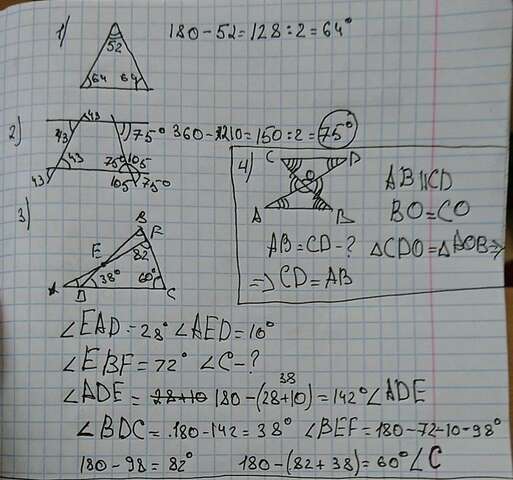 1) 52 180-52=128:2=64°
64 64
2) 43 75° 360-210=150:2=75°
43 43 75° 105
43 105 75°
4) C D
O AB||CD
A B BO=CO
AB=CD-? △CDO=△AOB⇒
⇒CD=AB
3) B
F
E 82
A D 38° 60° C
∠EAD-28° ∠AED=10°
∠EBF=72° ∠C-?
∠ADE= 28+10 180-(28+10)=142° ∠ADE
38
∠BDC=180-142=38° ∠BEF=180-72-10-98°
180-98=82° 180-(82+38)=60° ∠C